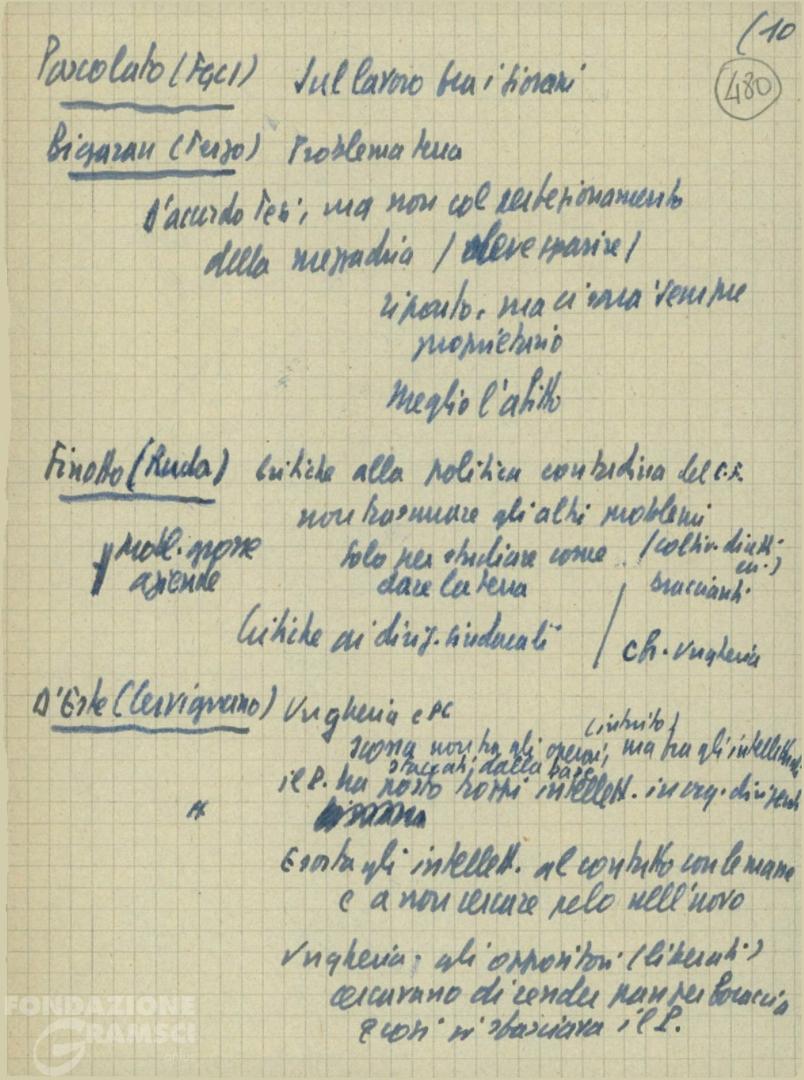 (10
480
Pascolato (FGCI) Sul lavoro tra i giovani
Bigaran (Terzo) Problema terra
D'accordo Tesi, ma non col perfezionamento
della mezzadria / deve sparire /
riparto, ma ci sarà sempre
proprietario
Meglio l'affitto
Finotto (Ruda) Critiche alla politica contadina del C.F.
non trascurare gli altri problemi
solo per studiare come (coltiv. dirett.
dare la terra
braccianti
probl. grosse
aziende
Critiche ai dirig. sindacali
ch. Ungheria
D'Este (Cervignano) Ungheria e PC
(intuito)
scossa non tra gli operai, ma tra gli intellettuali
staccati dalla base
il P. ha posto troppi intellett. in org. dirigenti
Esorta gli intellett. al contatto con le masse
e a non cercare pelo nell'uovo
Ungheria, gli oppositori (liberati)
cercavano di render pan per focaccia
e così si sbasciava il P.
FONDAZIONE
GRAMSCI